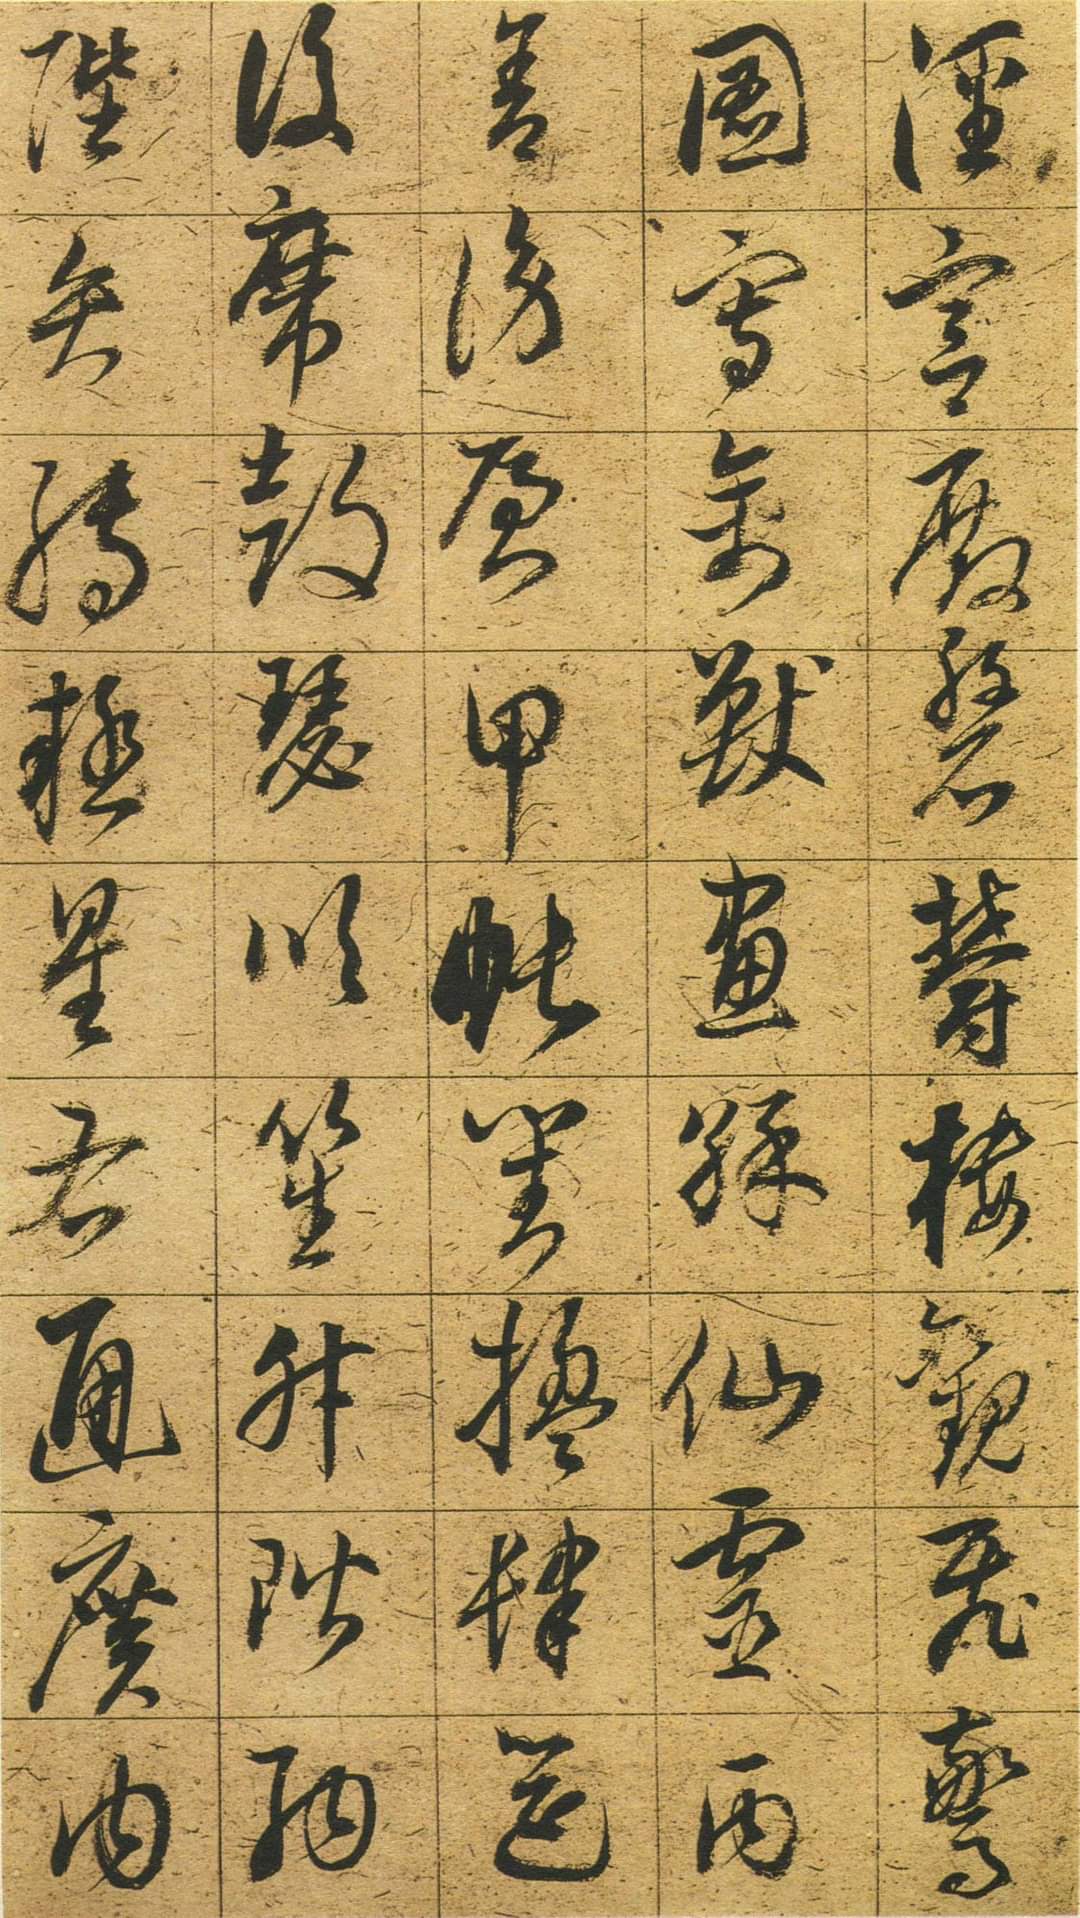 涇宮殿磐鬱樓觀飛驚
圖寫禽獸畫綵仙靈丙
舍傍啓甲帳對楹肆筵
設席鼓瑟吹笙升階納
陛弁轉疑星右通廣內